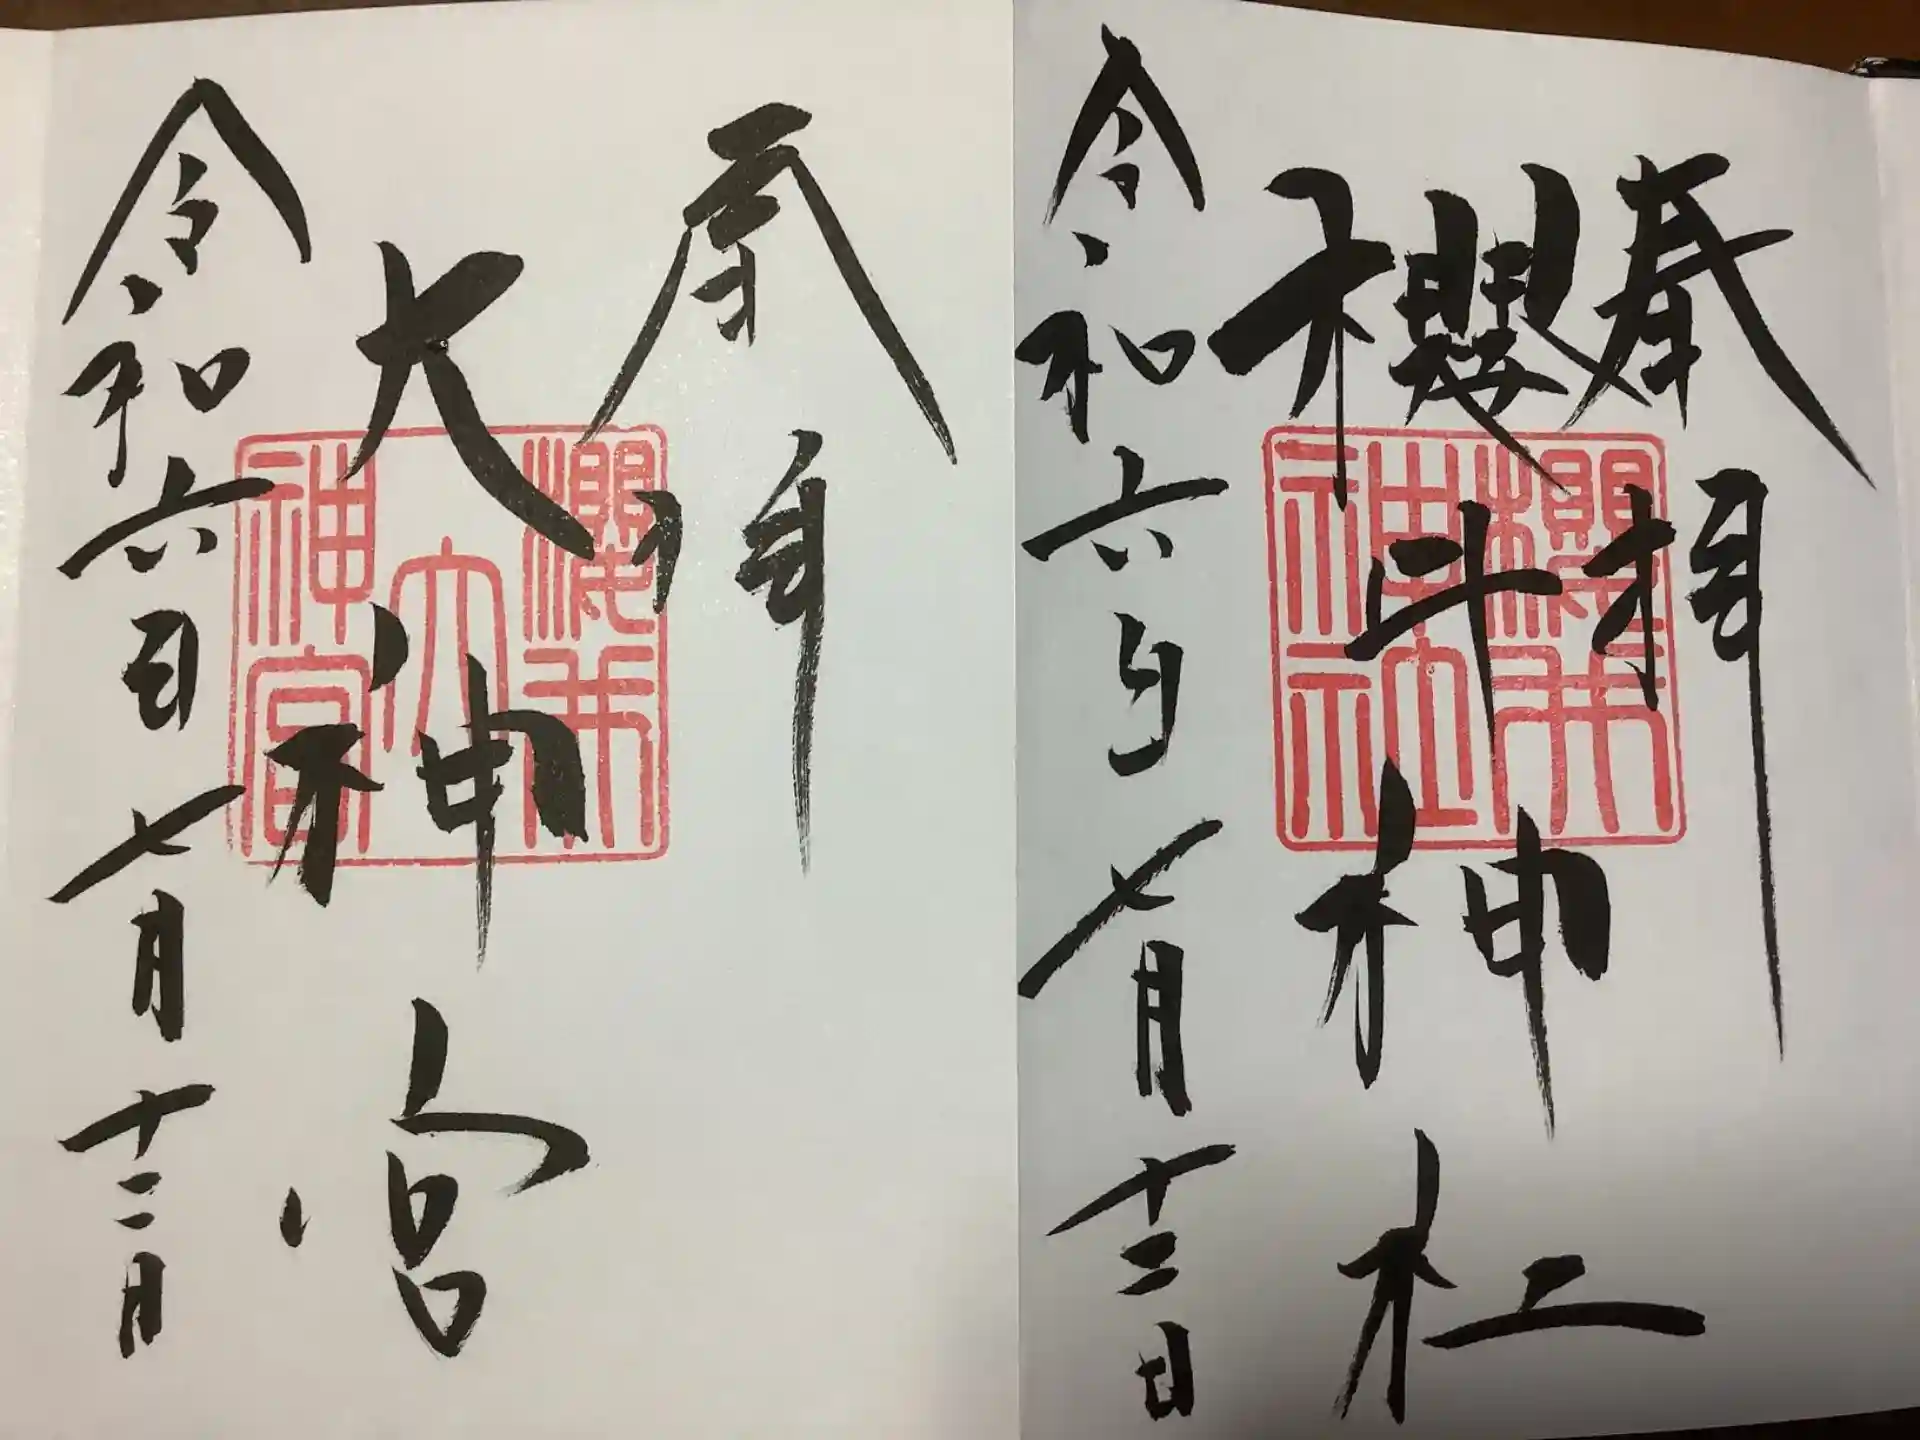 奉拝
櫻井神社
令和六年七月十二日
櫻井
神社
奉拝
大神宮
令和六年七月十二日
櫻井
大
神宮